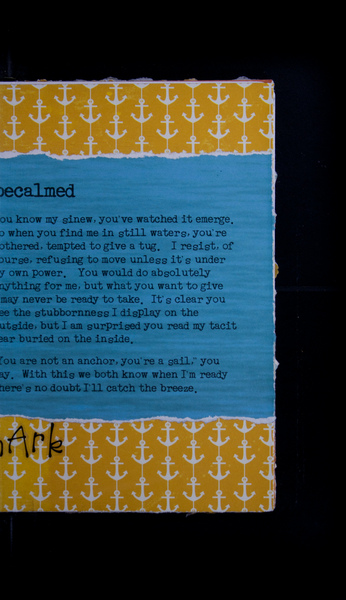 becalmed
ou know my sinew, you've watched it emerge.
o when you find me in still waters, you're
othered, tempted to give a tug. I resist, of
ourse, refusing to move unless it's under
y own power. You would do absolutely
nything for me, but what you want to give
may never be ready to take. It's clear you
ee the stubbornness I display on the
utside, but I am surprised you read my tacit
ear buried on the inside.
You are not an anchor, you're a sail," you
ay. With this we both know when I'm ready
here's no doubt I'll catch the breeze.
Ark